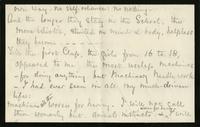 own way - no self-reliance: no nothing -
And the longer they stay in the School, the
more idiotic, stunted in mind & body, helpless
they become
To the first Class, the girls from 16 to 18,
appeared to me the most useless machines
- for doing anything but Machinery Needle work
- I had ever seen in all my much-driven
life:
machines & worse for having. I will not call
them womanly but animal instincts - I will